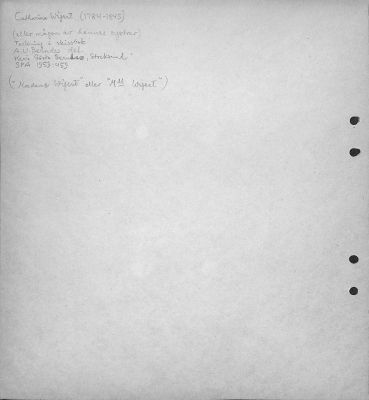 Catharina Wigert (1784-1845)
(eller någon av hennes systrar)
Teckning i skissbok
A.U. Berndes del.
Kers. Gösta Berndes, Stocksund
SPA 1953:453
("Madame Wigert" eller "Mll Wigert")